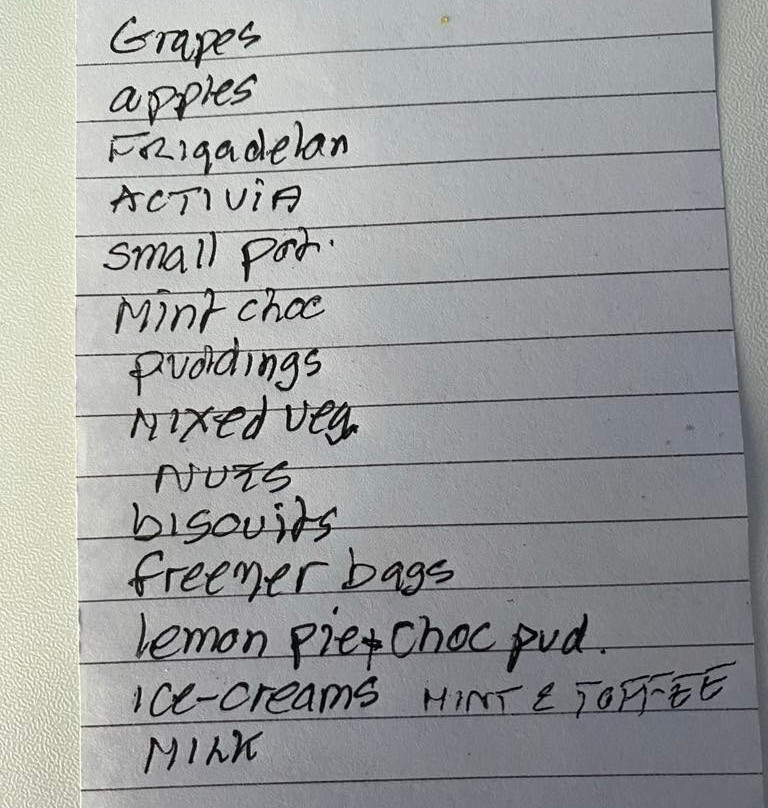 Grapes
apples
FRigadelan
ACTIViA
small pot.
Mint choc
puddings
Mixed veg.
NUTS
bisouits
freezer bags
lemon pie + choc pud.
ice-creams MINT & TOFFEE
MILK